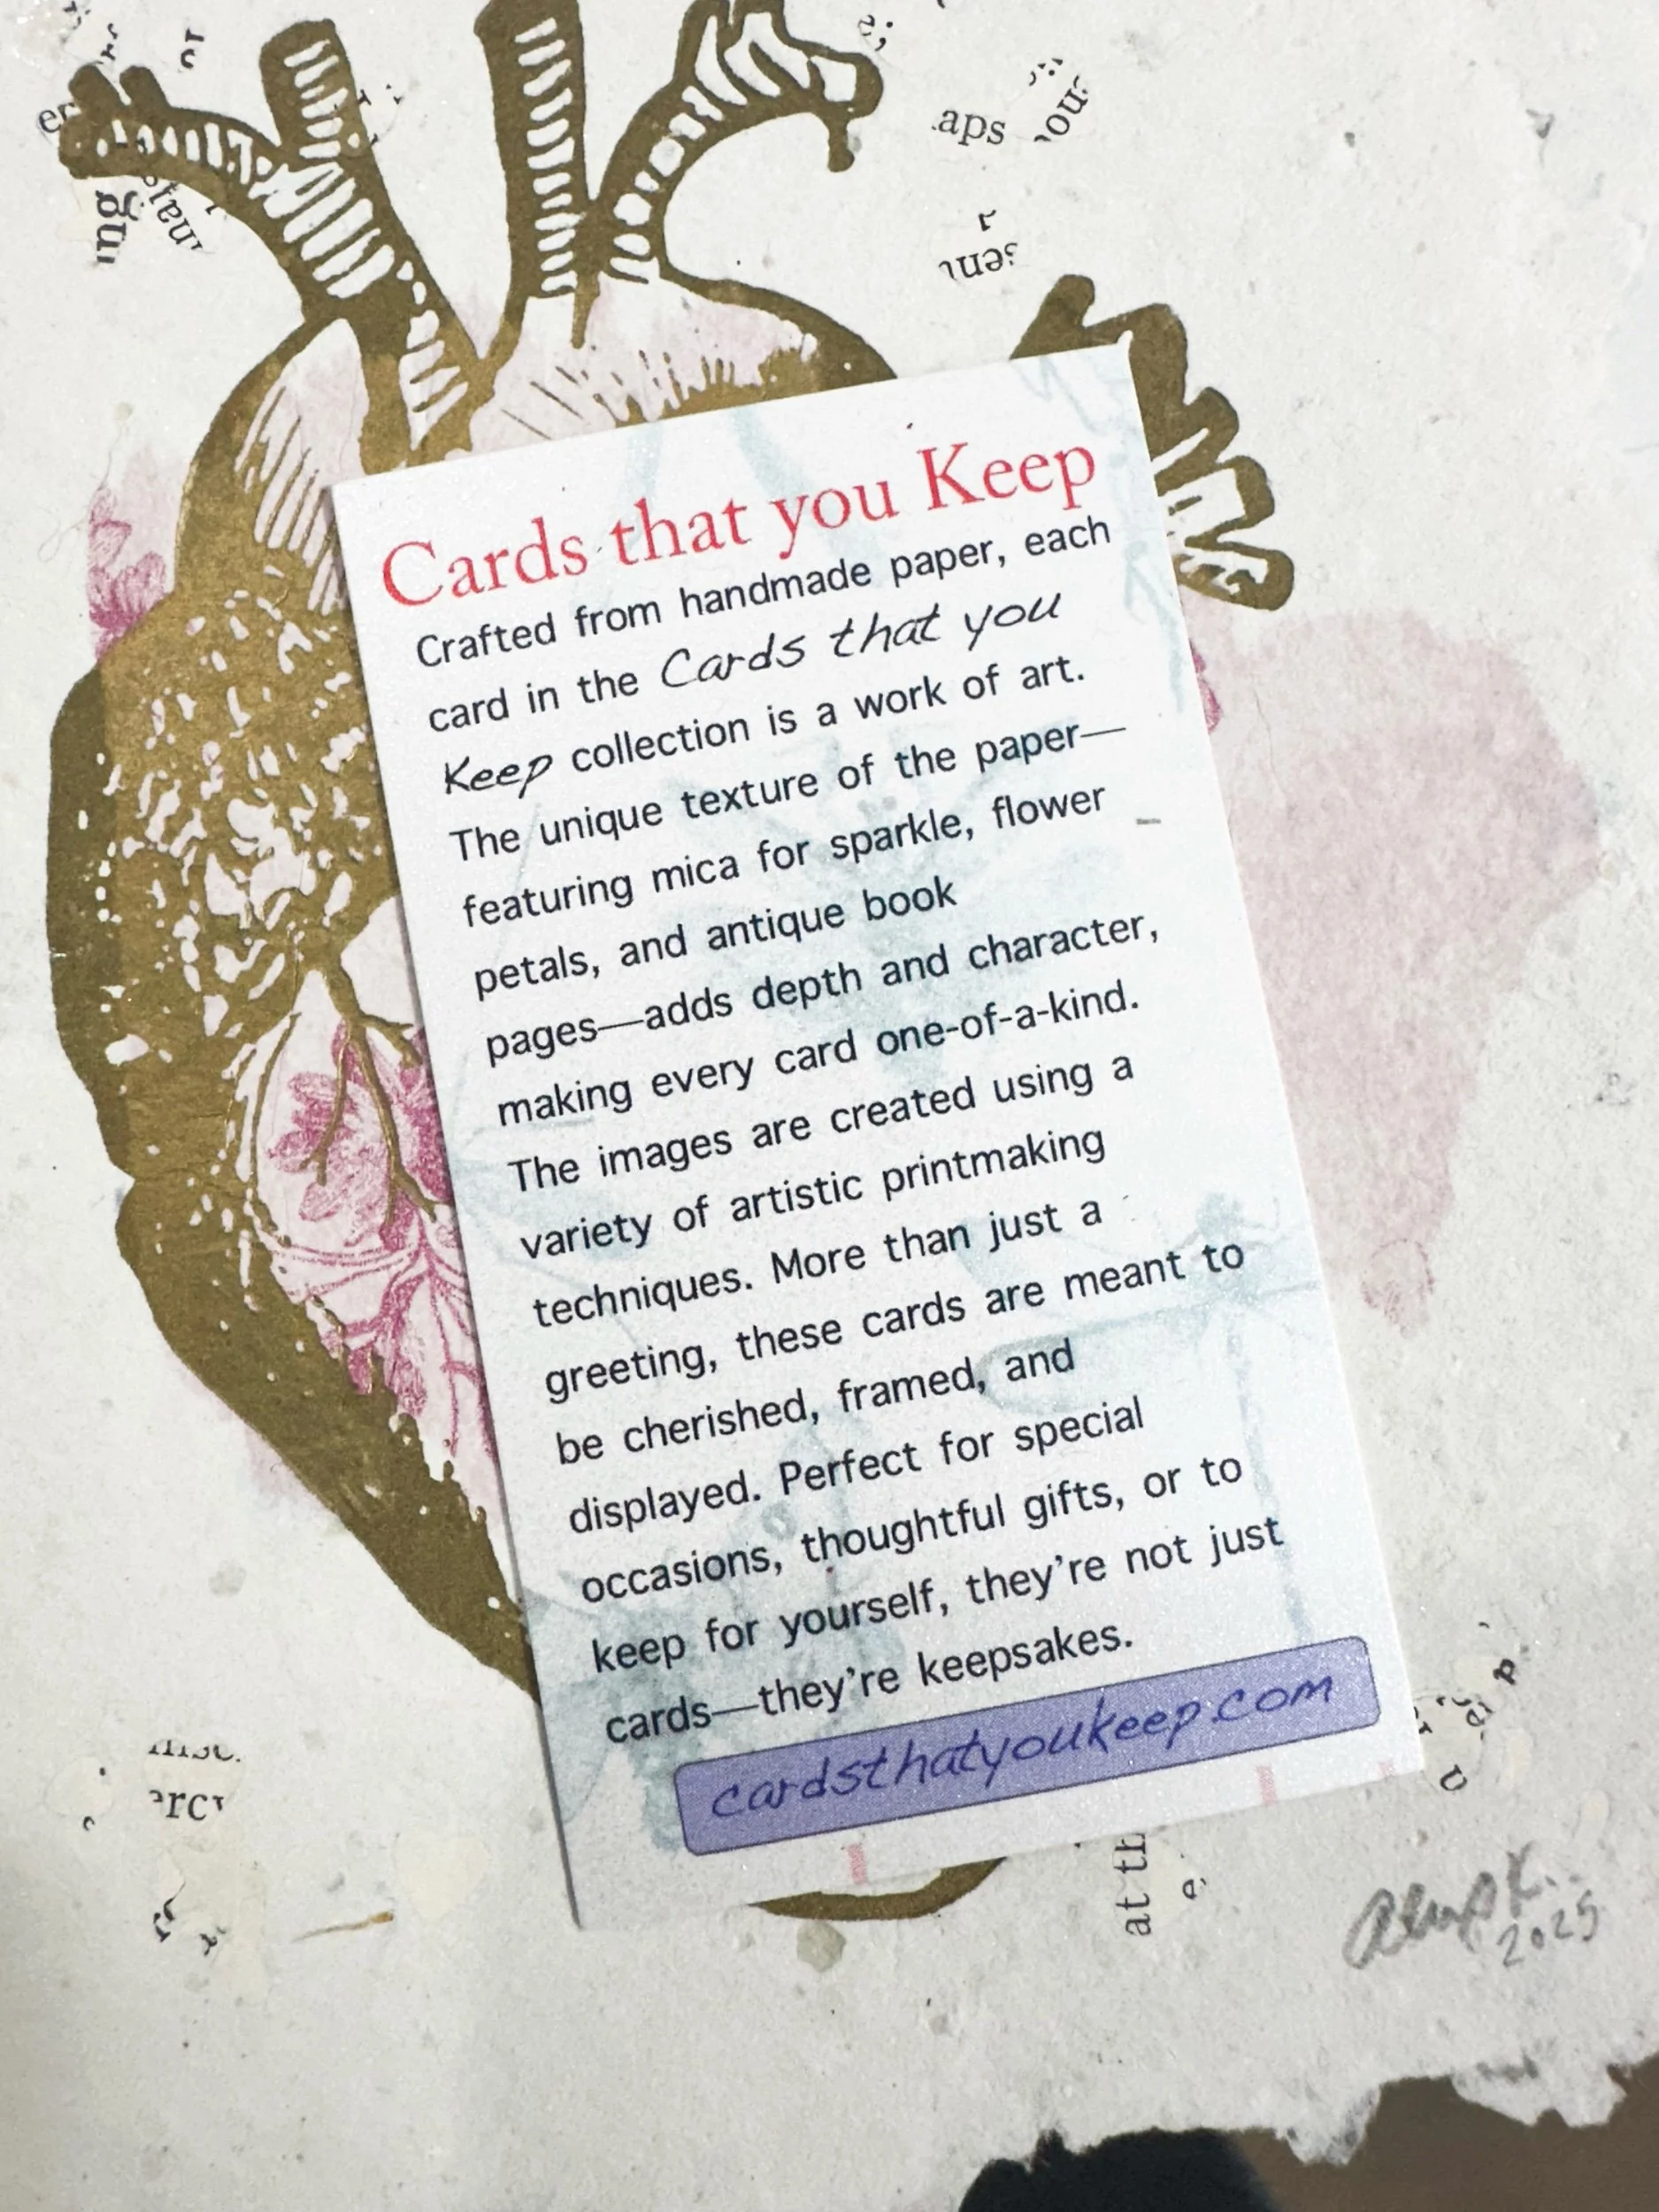 aps
Cards that you Keep
Crafted from handmade paper, each
card in the Cards that you
Keep collection is a work of art.
The unique texture of the paper—
featuring mica for sparkle, flower
petals, and antique book
pages—adds depth and character,
making every card one-of-a-kind.
The images are created using a
variety of artistic printmaking
techniques. More than just a
greeting, these cards are meant to
be cherished, framed, and
displayed. Perfect for special
occasions, thoughtful gifts, or to
keep for yourself, they're not just
cards—they're keepsakes.
cardsthatyoukeep.com
at th
2025